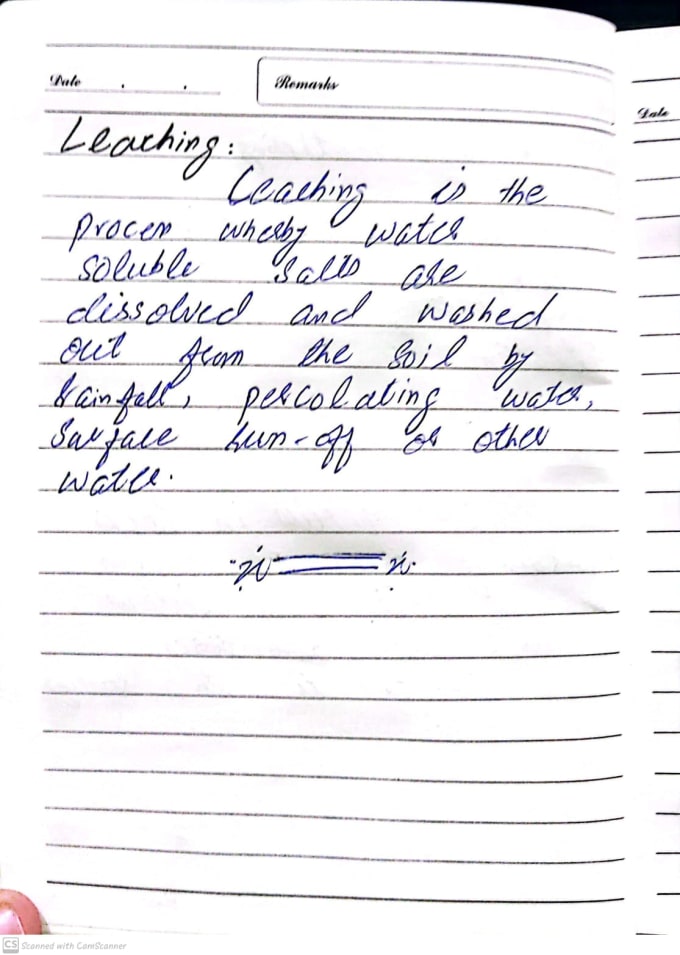 Date . . Remarks
Date
Leaching:
Leaching is the
process whereby water
soluble salts are
dissolved and washed
out from the soil by
rainfall, percolating water,
surface run-off or other
water.
CS Scanned with CamScanner